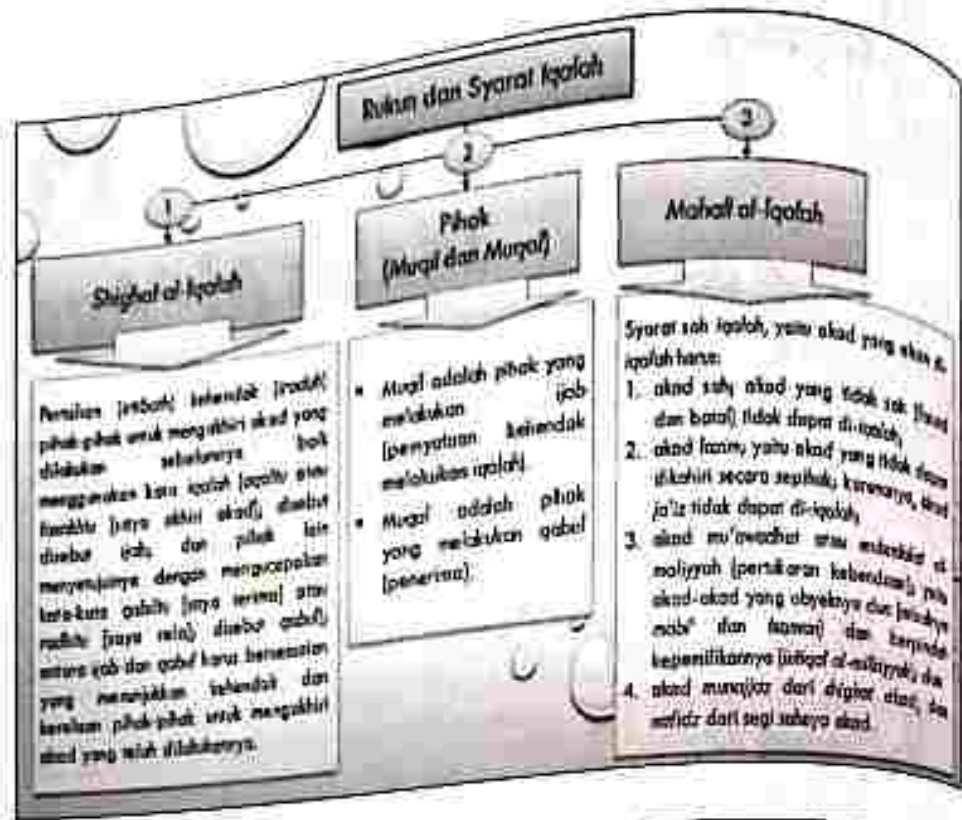 Rukun dan Syarat Iqalah
1
2
3
Shighat al-Iqalah
Pernyataan kehendak
pihak-pihak untuk mengakhiri akad yang
dilakukan sebelumnya baik
menggunakan kata iqalah atau
(saya akhiri akad), disebut
disebut ijab, dan pihak lain
menyetujuinya dengan mengucapkan
kata-kata qabiltu (saya terima) atau
radhitu (saya rela), disebut qabul),
antara ijab dan qabul harus bersesuaian
yang menunjukkan kehendak dan
kerelaan pihak-pihak untuk mengakhiri
akad yang telah dilakukannya.
Pihak
(Muqil dan Muqal)
• Muqil adalah pihak yang
melakukan ijab
(pernyataan kehendak
melakukan iqalah).
• Muqal adalah pihak
yang melakukan qabul
(penerima).
Mahall al-Iqalah
Syarat sah iqalah, yaitu akad yang akan di-
iqalah harus:
1. akad sah; akad yang tidak sah (fasad
dan batal) tidak dapat di-iqalah;
2. akad lazim; yaitu akad yang tidak dapat
diakhiri secara sepihak; karenanya, akad
ja'iz tidak dapat di-iqalah;
3. akad mu'awadhat atau al-
maliyyah (pertukaran kebendaan); yaitu
akad-akad yang obyeknya dua
mabi' dan tsaman) dan berpindah
kepemilikannya dan
4. akad munajjaz dari akad, dan
nafidz dari segi akad.